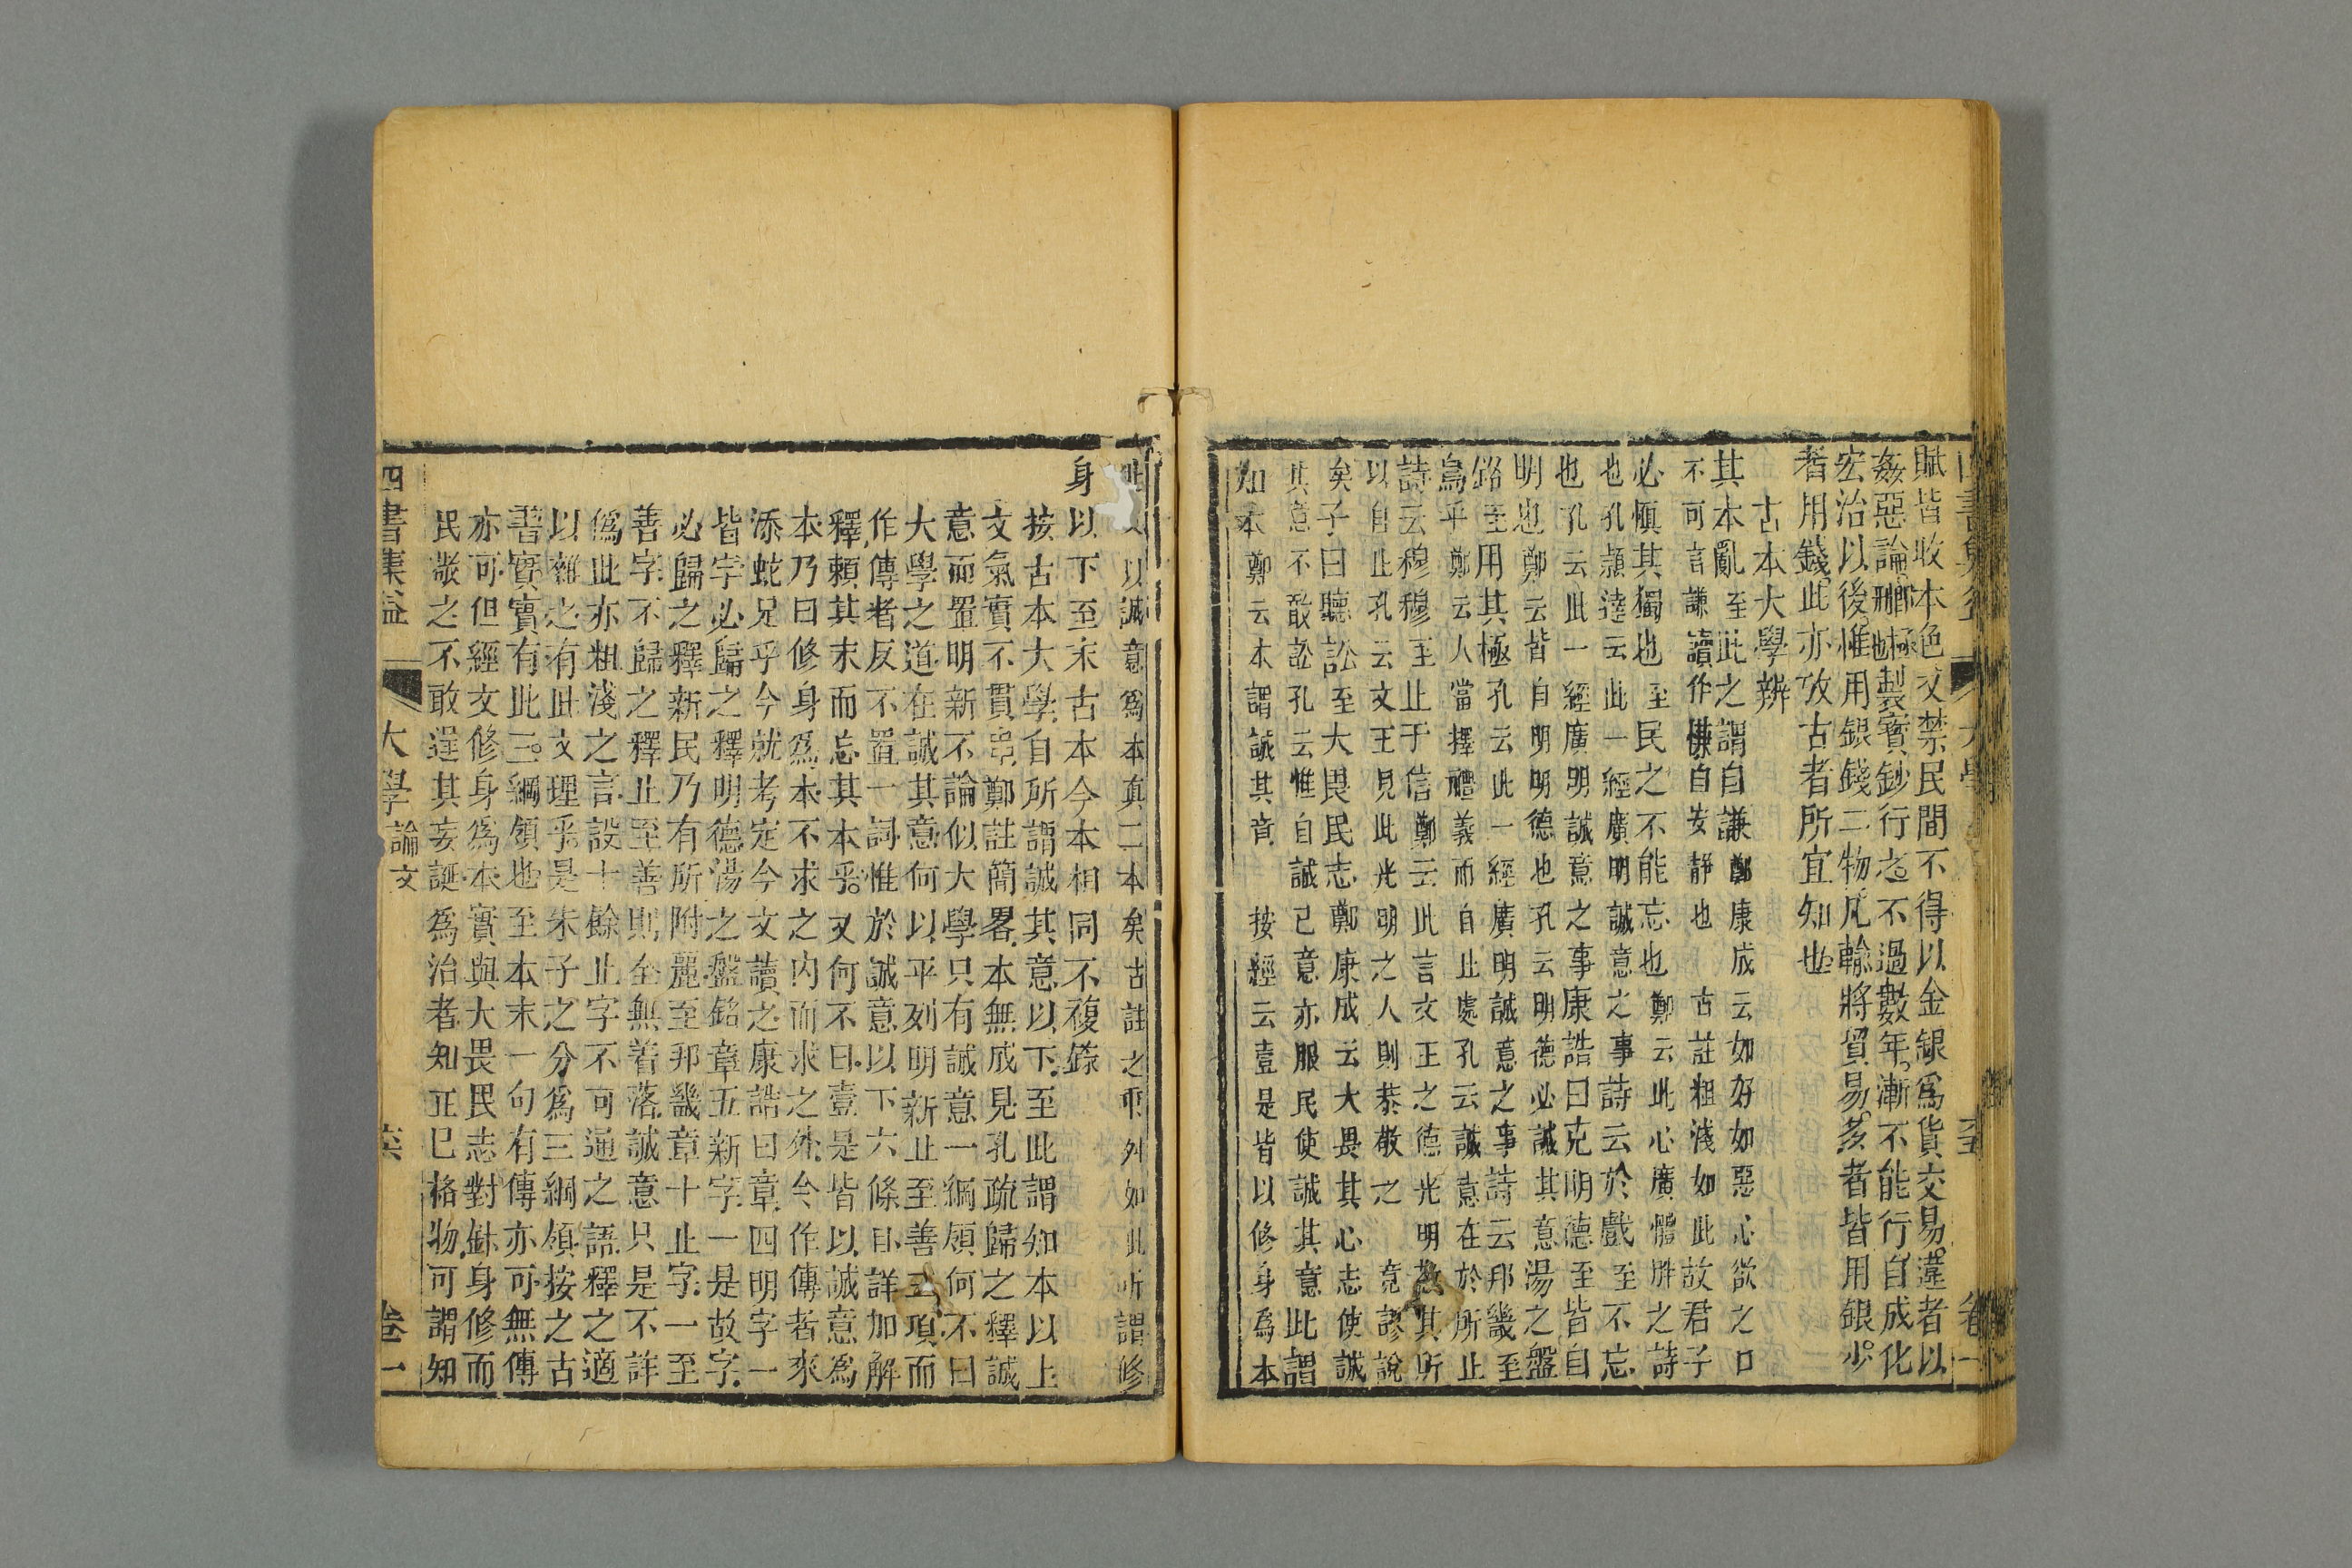 賦皆收本色又禁民間不得以金銀爲貨交易違者以
姦惡論鄺極也製寶鈔行之不過數年漸不能行自成化
宏治以後惟用銀錢二物凡輸將貿易多者皆用銀少
者用錢此亦攷古者所宜知也
古本大學辨
其本亂至此之謂自謙鄭康成云如好如惡心欲之口
不可言謙讀作慊自安靜也 古註粗淺如此故君子
必愼其獨也至民之不能忘也鄭云此心廣體胖之詩
也孔頴達云此一經廣明誠意之事詩云於戲至不忘
也孔云此一經廣明誠意之事康誥曰克明德至皆自
明也鄭云皆自明明德也孔云明明德必誠其意湯之盤
銘至用其極孔云此一經廣明誠意之事詩云邦畿至
鳥乎鄭云人當擇禮義而自止處孔云誠意在於所止
詩云穆穆至止于信鄭云此言文王之德光明敬其所
以自止孔云文王見此光明之人則恭敬之 竟謬說
矣子曰聽訟至大畏民志鄭康成云大畏其心志使誠
其意不敢訟孔云惟自誠已意亦服民使誠其意此謂
知本鄭云本謂誠其意 按經云壹是皆以修身爲本
以誠意爲本眞二本矣古註之乖舛如此所謂修
身以下至末古本今本相同不複錄
按古本大學自所謂誠其意以下至此謂知本以上
文氣實不貫串鄭註簡畧本無成見孔疏歸之釋誠
意而置明新不論似大學只有誠意一綱領何不曰
大學之道在誠其意何以平列明新止至善三項而
作傳者反不置一詞惟於誠意以下六條目詳加解
釋頼其末而忘其本乎又何不曰壹是皆以誠意爲
本乃曰修身爲本不求之內而求之外今作傳者來
添蛇足乎今就考定今文讀之康誥曰章四明字一
皆字必歸之釋明德湯之盤銘章五新字一是故字
必歸之釋新民乃有所附麗至邦畿章十止字一至
善字不歸之釋止至善則全無着落誠意只是不詳
爲此亦粗淺之言設十餘止字不可通之語釋之適
以雜之有此文理乎是朱子之分爲三綱領按之古
書實實有此三綱領也至本末一句有傳亦可無傳
亦可但經文修身爲本實與大畏民志對針身修而
民敬之不敢逞其妄誕爲治者知正已格物可謂知
四書集益 大學 論文 卷一